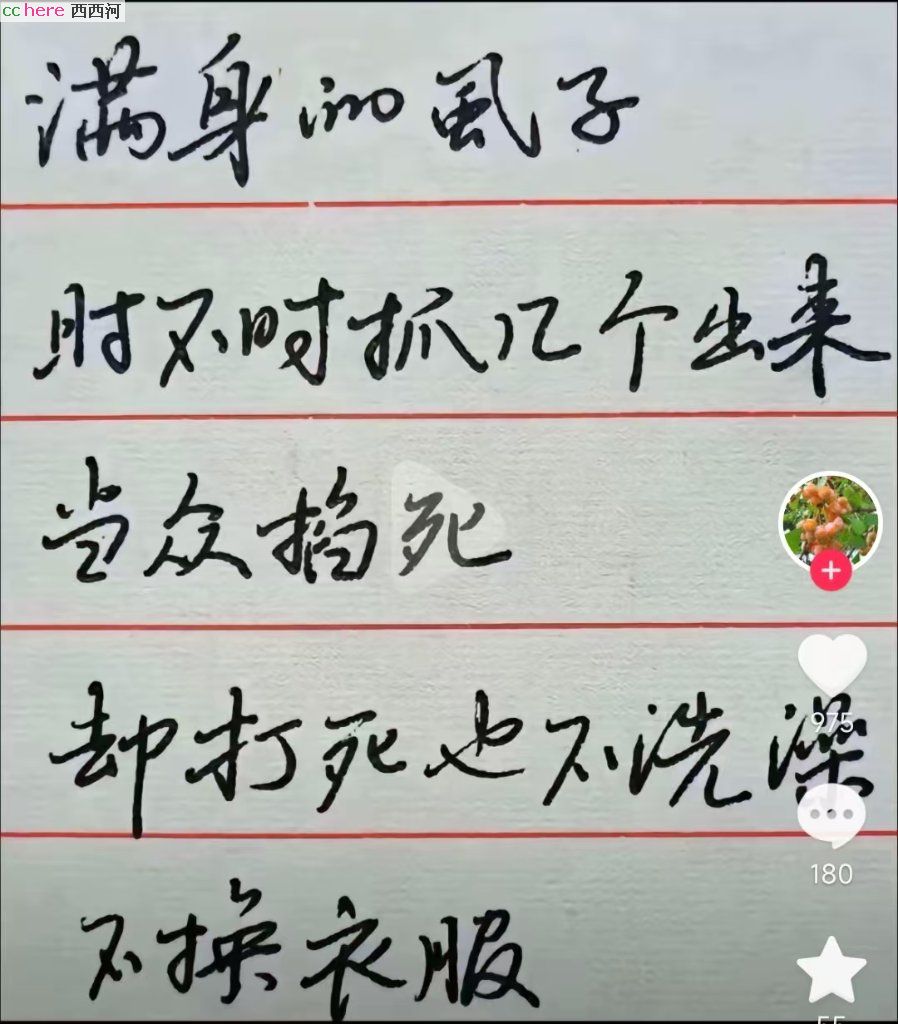 cchere 西西河
满身的虱子
时不时抓几个出来
当众掐死
却打死也不洗澡
975
180
不换衣服
55